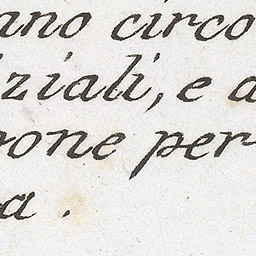 ano circo
ziali, e a
one per
a.